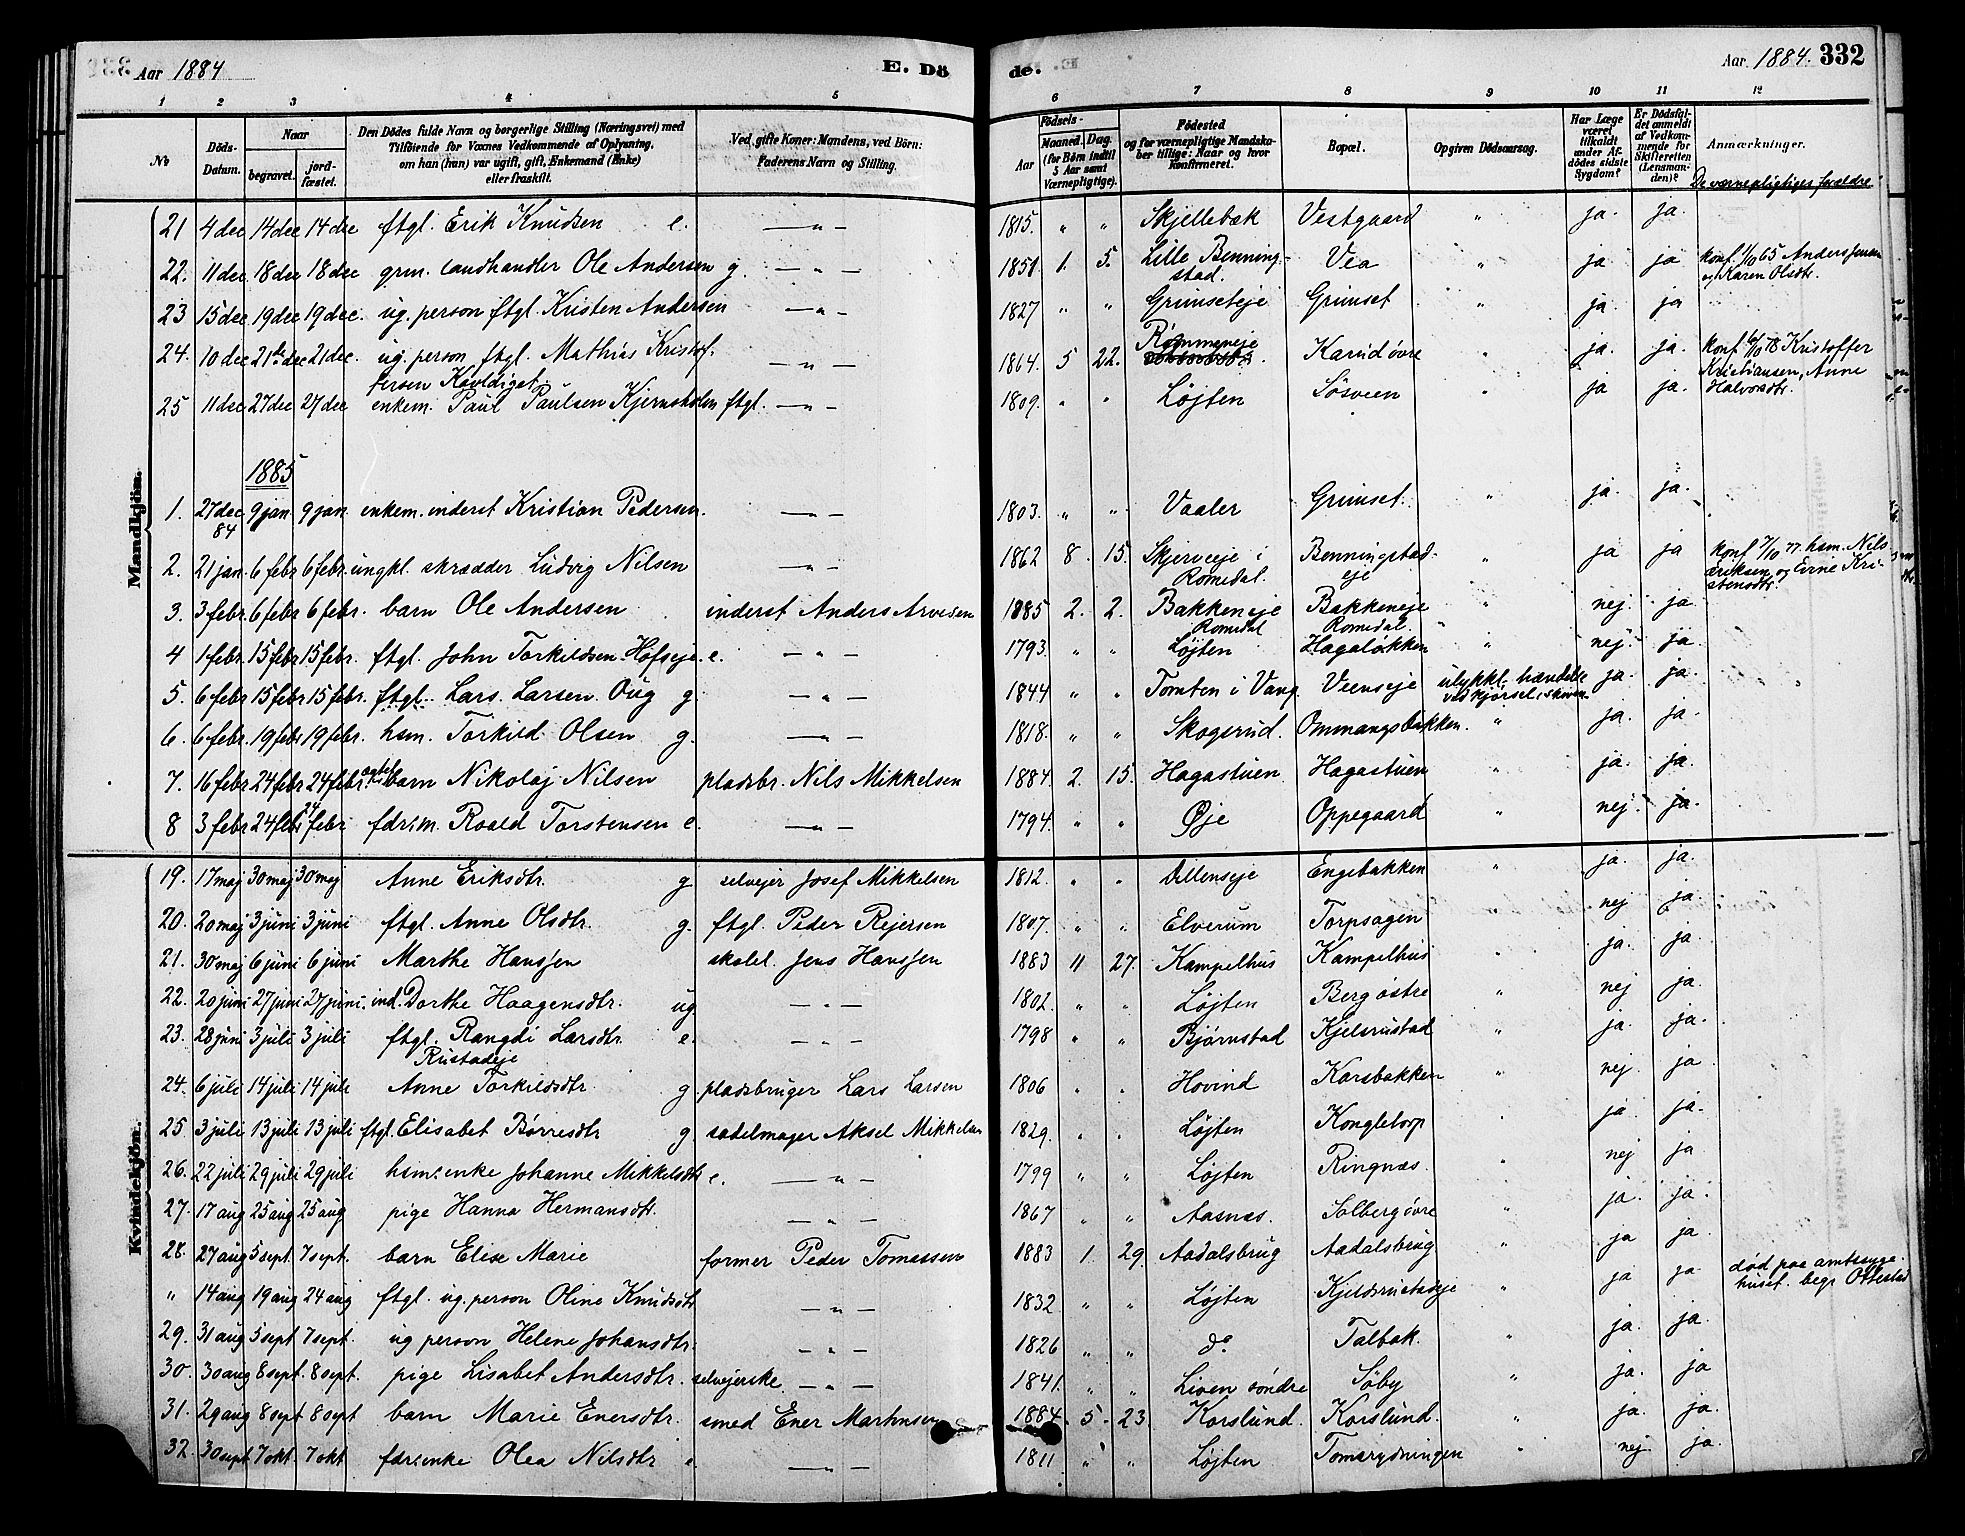 Aar 1884 E. Dö de. Aar 1884. 332
1 2 3 4 5 6 7 8 9 10 11 12
No
Döds-Datum.
Naar
begravet.
jordfæstet.
Den Dödes fulde Navn og borgerlige Stilling (Næringsvei) med
Tilföiende for Voxnes Vedkommende af Oplysning,
om han (hun) var ugift, gift, Enkemand (Enke)
eller fraskilt.
Ved gifte Koner: Mandens, ved Börn:
Faderens Navn og Stilling.
Födsels-
Aar
Maaned. Dag.
(for Börn indtil
5 Aar samt
Værnepligtige).
Födested
og for værnepligtige Mandskaber tillige: Naar og hvor
konfirmeret.
Bopæl.
Opgiven Dödsaarsag.
Har Læge været tilkaldt under Afdödes sidste Sygdom?
Er Dödsfaldet anmeldt af Vedkommende for Skifteretten (Lensmanden)?
Anmærkninger.
De værnepligtiges forældre
Mandkjön.
21 4 dec 14 dec 14 dec ftgl. Erik Knudsen e. — " — 1815. " " Skjellebæk Vestgaard " ja. ja.
22. 11 dec 18 dec 18 dec grm. landhandler Ole Andersen g. — " — 1851 1. 5. Lille Benningstad. Vea " ja ja konf. 1/10 65 Anders Jensen og Karen Olsdtr.
23 15 dec 19 dec 19 dec. ug. person ftgl. Kristen Andersen — " — 1827 " " Grimseteje Grimset " ja ja
24. 10 dec 21de dec 21 dec. ug. person ftgl. Mathias Kristoffersen Kvoldiget — " — 1864 5 22. Rømmeneje Karudøvre " ja. ja. konf 6/10 78 Kristoffer Kristiansen, Anne Halvorsdtr.
25 11 dec 27 dec 27 dec enkem. Paul Paulsen Kjernsholen ftgl. — " — 1809. " " Løjten Søsveen " ja ja.
1885
1. 27 dec 84 9 jan. 9 jan. enkem. inderst Kristian Pedersen. — " — 1803. " " Vaaler Grimset. " ja. ja.
2. 21 jan. 6 febr 6 febr. ungkl. skrædder Ludvig Nilsen — " — 1862 8. 15. Skjerveeje i Romedal. Benningstadeje " ja ja konf. 7/10 77. hsm. Nils Eriksen og Eirne Kristensdtr.
3. 3 febr. 6 febr. 6 febr. barn Ole Andersen inderst Anders Arvesen 1885 2. 2. Bakkeneje Romedal Bakkeneje Romedal. " nej. ja
4 1 febr. 15 febr 15 febr. ftgl. John Torkildsen Hofseje. e. — " — 1793. " " Løjten Hagaløkken " nej. ja.
5. 6 febr 15 febr 15 febr. ftgl. Lars Larsen Oug g. — " — 1844 " " Tomten i Vang Veenseje ulykkl. hændelse ved kjørsel i skoven ja. ja.
6. 6 febr. 19 febr 19 febr. hsm. Torkild Olsen g. — " — 1818. " " Skogsrud. Ommangsbakken. " ja. ja.
7. 16 febr 24 febr 24 febr. barn Nikolaj Nilsen pladsbr. Nils Mikkelsen 1884 2. 15. Hagastuen Hagastuen " ja. ja.
8 3 febr 24 febr 24 febr fdrsm. Roald Torstensen e. — " — 1794. " " Øje Oppegaard " nej. ja.
Kvindekjön.
19. 17 maj 30 maj 30 maj Anne Eriksdtr. g selvejer Josef Mikkelsen 1812. " " Dillenseje Engebakken " ja. ja.
20. 20 maj 3 juni 3 juni ftgl. Anne Olsdtr. g. ftgl. Peder Rejersen 1807. " " Elverum Torpsagen " nej ja.
21. 30 maj 6 juni 6 juni Marthe Hansjen skolel. Jens Hansjen 1883 11 27. Kampelhus Kampelhus " ja. ja.
22. 20 juni 27 juni 27 juni. ind. Dorthe Haagensdtr. ug. — " — 1802. " " Løjten Bergøstre " nej ja.
23. 28 juni 3 juli 3 juli ftgl. Rangdi Larsdtr. Rustadeje e. — " — 1798 " " Bjørnstad Kjelsrustad " ja. ja.
24. 6 juli 14 juli 14 juli Anne Torkildsdtr g. pladsbruger Lars Larsen 1806 " " Hovind Korsbakken " nej. ja
25. 3 juli 13 juli 13 juli ftgl. Elisabet Børresdtr g sadelmager Aksel Mikkelsen 1829. " " Løjten Kongletorp ja. ja.
26. 22 juli 29 juli 29 juli hsm. enke Johanne Mikkelsdtr e. — " — 1799 " " Løjten Ringnæs. " nej ja
27. 17 aug 25 aug 25 aug pige Hanna Hermansdtr. — " — 1867 " " Aasnæs. Solbergøvre " ja. ja.
28. 27 aug 5 sept. 7 sept. barn Elise Marie former Peder Tomassen 1883 1. 29. Aadalsbrug Aadalsbrug " ja ja.
" 14 aug 19 aug 24 aug ftgl. ug. person Oline Knudsdtr — " — 1832 " " Løjten Kjeldsrustadeje " ja ja. død paa amtssygehuset. begr Ottestad
29. 31 aug 5 sept. 7 sept. ug person Helene Johansdtr. — " — 1826 " " do Talbak. " ja. ja.
30. 30 aug 8 sept. 8 sept. pige Lisabet Andersdtr. selvejerske. — " — 1841. " " Liven søndre Søby " ja. ja
31. 29 aug 8 sept 8 sept barn Marie Enersdtr. smed Ener Martinsen 1884. 5. 23. Korslund. Korslund. " ja. ja.
32. 30 sept. 7 okt. 7 okt fdrs. enke Olea Nilsdtr — " — 1811 " " Løjten Tomarydningen " nej. ja.